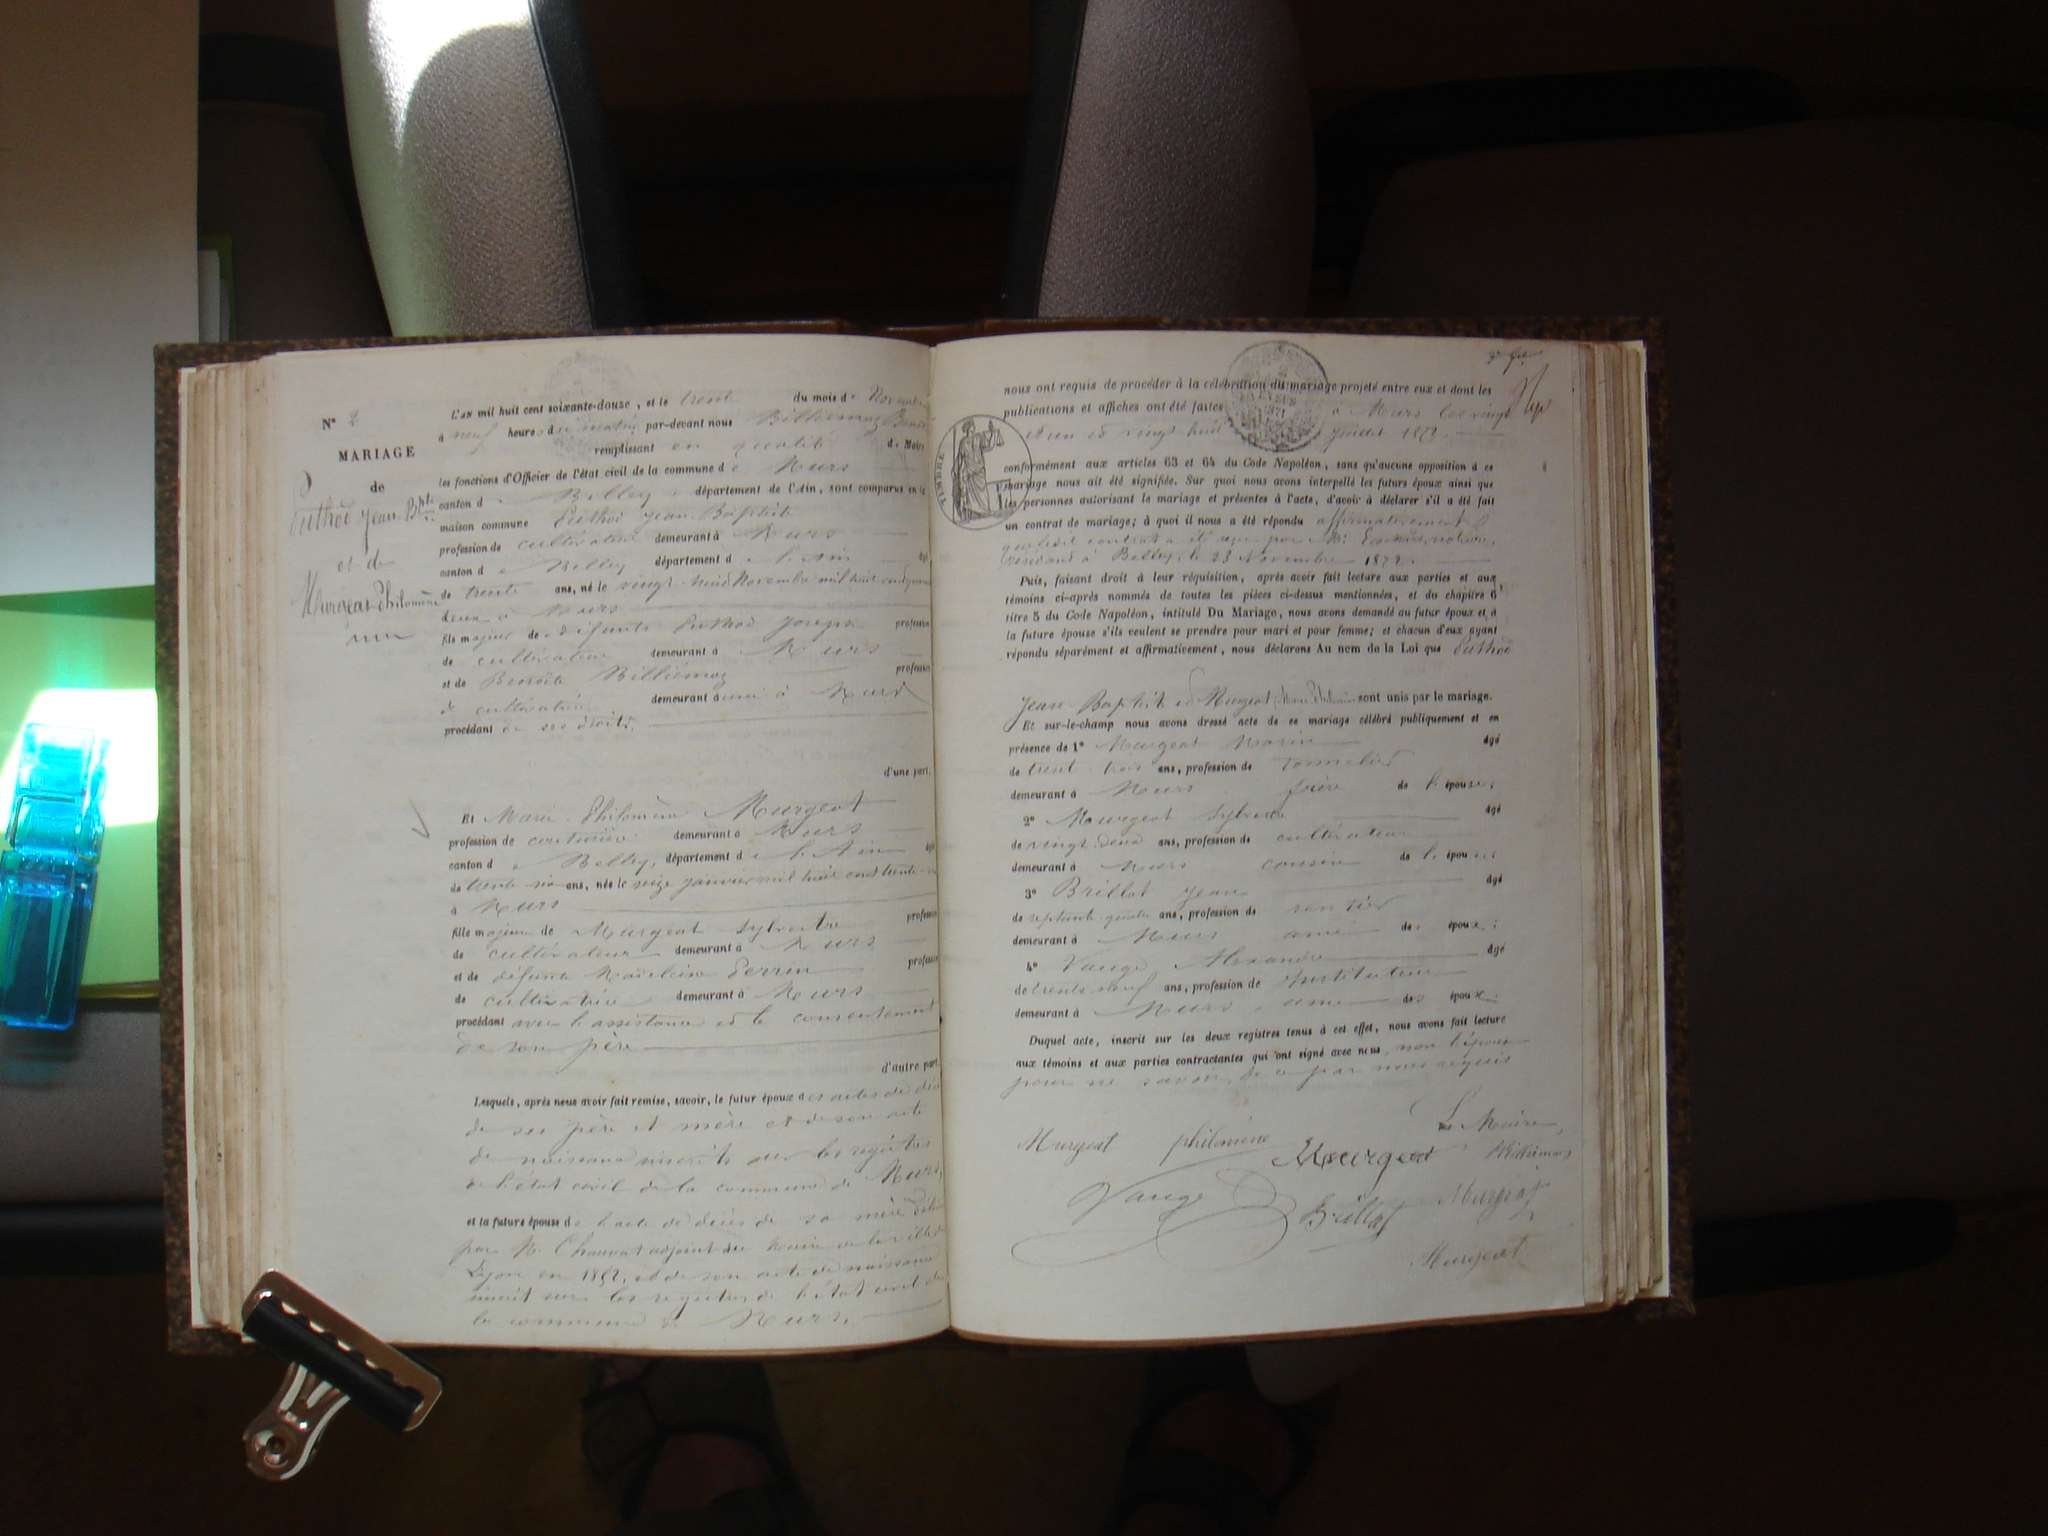 N° 2
MARIAGE
de
Euthoz Jean Bte
et de
Murgeat Philomène
L'an mil huit cent soixante-douze, et le trente du mois de Novembre
à neuf heures du matin par-devant nous Billiemaz
remplissant en qualité de Maire
les fonctions d'Officier de l'état civil de la commune de
canton de Belley département de l'Ain, sont comparus en la
maison commune Jean Baptiste
profession de cultivateur demeurant à
canton de Belley département de l'Ain âgé
de trente ans, né le vingt Novembre mil huit cent
deux à
fils majeur de défunts Joseph profession
de cultivateur demeurant à
et de Benoîte Billiémaz profession
de cultivatrice demeurant à
procédant de ses droits.
d'une part.
Et Marie Philomène Murgeat
profession de couturière demeurant à
canton de Belley, département de l'Ain âgé
de trente ans, née le seize janvier mil huit cent trente
à
fille majeure de Murgeat Sylvestre profession
de cultivateur demeurant à
et de défunte Perrin profession
de cultivatrice demeurant à
procédant avec l'assistance et le consentement
de son père
d'autre part.
Lesquels, après nous avoir fait remise, savoir, le futur époux des actes de décès
de ses père et mère et de son acte
de naissance inscrits sur les registres
de l'état civil de la commune de
et la future épouse de l'acte de décès de sa mère
par M. Chauvat adjoint du Maire de la ville de
Lyon en 1852, et de son acte de naissance
inscrit sur les registres de l'état civil de
la commune de
nous ont requis de procéder à la célébration du mariage projeté entre eux et dont les
publications et affiches ont été faites à les vingt
et un et vingt huit juillet 1872.
TIMBRE
1871
conformément aux articles 63 et 64 du Code Napoléon, sans qu'aucune opposition à ce
mariage nous ait été signifiée. Sur quoi nous avons interpellé les futurs époux ainsi que
les personnes autorisant le mariage et présentes à l'acte, d'avoir à déclarer s'il a été fait
un contrat de mariage; à quoi il nous a été répondu affirmativement
que ledit contrat a été reçu par Me notaire,
résidant à Belley, le 23 Novembre 1872.
Puis, faisant droit à leur réquisition, après avoir fait lecture aux parties et aux
témoins ci-après nommés de toutes les pièces ci-dessus mentionnées, et du chapitre 6,
titre 5 du Code Napoléon, intitulé Du Mariage, nous avons demandé au futur époux et à
la future épouse s'ils veulent se prendre pour mari et pour femme; et chacun d'eux ayant
répondu séparément et affirmativement, nous déclarons Au nom de la Loi que
Jean Baptiste et Murgeat sont unis par le mariage.
Et sur-le-champ nous avons dressé acte de ce mariage célébré publiquement et en
présence de 1° Murgeat Marin âgé
de trente-trois ans, profession de tonnelier
demeurant à frère de l'épouse;
2° Murgeat Sylvain âgé
de vingt-deux ans, profession de cultivateur
demeurant à cousin de l'épouse;
3° Brillat Jean âgé
de ans, profession de rentier
demeurant à ami des époux;
4° Vauge Alexandre âgé
de trente-neuf ans, profession de Instituteur
demeurant à ami des époux:
Duquel acte, inscrit sur les deux registres tenus à cet effet, nous avons fait lecture
aux témoins et aux parties contractantes qui ont signé avec nous, non l'époux
pour ne savoir, de ce par nous requis
Le Maire,
Murgeat philomène Murgeat Billiémaz
Vauge Brillat Murgeat
Murgeat